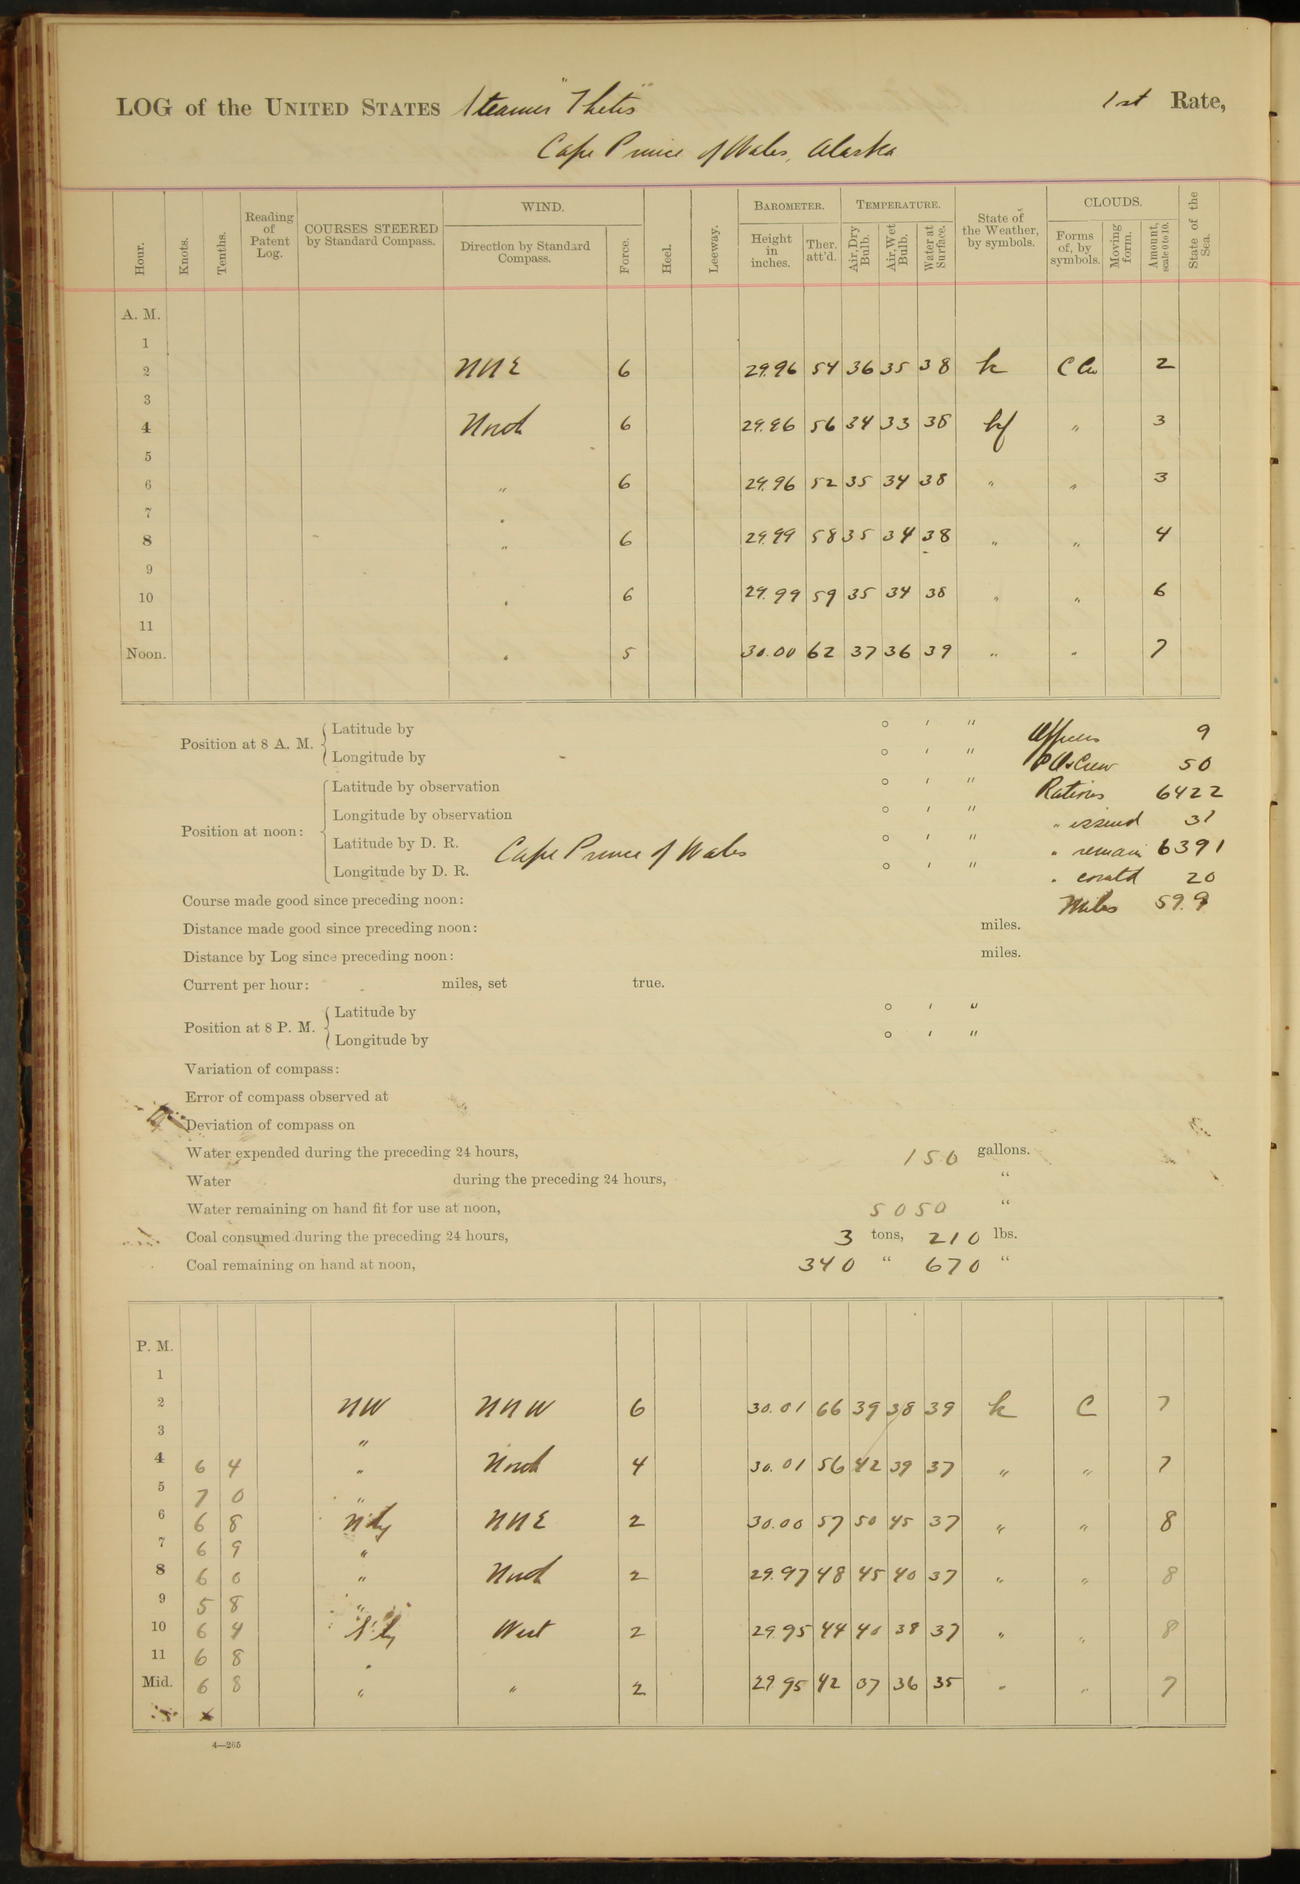 LOG of the UNITED STATES Steamer "Thetis" 1st Rate,
Cape Prince of Wales, Alaska
Hour. Knots. Tenths. Reading of Patent Log. COURSES STEERED by Standard Compass. WIND. Direction by Standard Compass. Force. Heel. Leeway. BAROMETER. Height in inches. Ther. att'd. TEMPERATURE. Air, Dry Bulb. Air, Wet Bulb. Water at Surface. State of the Weather, by symbols. CLOUDS. Forms of, by symbols. Moving form. Amount, scale 0 to 10. State of the Sea.
A. M.
1
2 NNE 6 29.96 54 36 35 38 k C Cu 2
3
4 North 6 29.96 56 34 33 38 kf " 3
5
6 " 6 29.96 52 35 34 38 " " 3
7
8 " 6 29.99 58 35 34 38 " " 4
9
10 " 6 29.99 59 35 34 38 " " 6
11
Noon. " 5 30.00 62 37 36 39 " " 7
Position at 8 A. M. Latitude by ° ' " Officers 9
Longitude by ° ' " Crew 50
Position at noon: Latitude by observation ° ' " Rations 6422
Longitude by observation ° ' " " issued 31
Latitude by D. R. Cape Prince of Wales ° ' " " remain 6391
Longitude by D. R. ° ' " " 20
Course made good since preceding noon: Miles 59.9
Distance made good since preceding noon: miles.
Distance by Log since preceding noon: miles.
Current per hour: miles, set true.
Position at 8 P. M. Latitude by ° ' "
Longitude by ° ' "
Variation of compass:
Error of compass observed at
Deviation of compass on
Water expended during the preceding 24 hours, 150 gallons.
Water during the preceding 24 hours, "
Water remaining on hand fit for use at noon, 5050 "
Coal consumed during the preceding 24 hours, 3 tons, 210 lbs.
Coal remaining on hand at noon, 340 " 670 "
P. M.
1
2 NW NNW 6 30.01 66 39 38 39 k C 7
3 "
4 6 4 " North 4 30.01 56 42 39 37 " " 7
5 7 0 "
6 6 8 N'dy NNE 2 30.00 57 50 45 37 " " 8
7 6 9 "
8 6 0 " North 2 29.97 48 45 40 37 " " 8
9 5 8 "
10 6 4 West 2 29.95 44 40 38 37 " " 8
11 6 8 "
Mid. 6 8 " " 2 29.95 42 37 36 35 " " 7
4—265